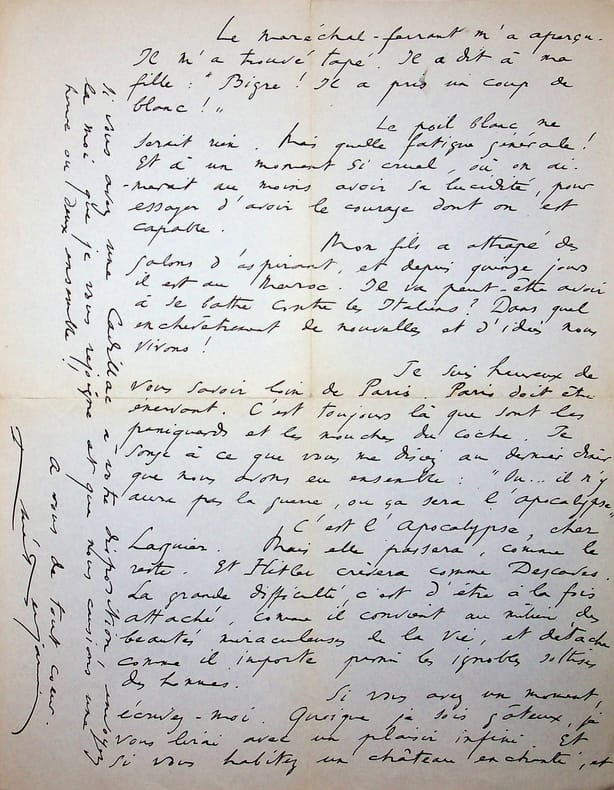 Le maréchal-ferrant m'a aperçu.
Il m'a trouvé tapé. Il a dit à ma
fille : "Bigre ! Il a pris un coup de
blanc !"
Le poil blanc ne
serait rien. Mais quelle fatigue générale !
Et à un moment si cruel, où on ai-
-merait au moins avoir sa lucidité, pour
essayer d'avoir le courage dont on est
capable.
Mon fils a attrapé des
galons d'aspirant, et depuis quinze jours
il est au Maroc. Il va peut-être avoir
à se battre contre les Italiens ? Dans quel
enchevêtrement de nouvelles et d'idées nous
vivons !
Je suis heureux de
vous savoir loin de Paris. Paris doit être
énervant. C'est toujours là que sont les
paniquards et les mouches du coche. Je
songe à ce que vous me disiez au dernier dîner
que nous avons eu ensemble : "Ou... il n'y
aura pas la guerre, ou ça sera l'apocalypse"
C'est l'Apocalypse, cher
Laquier. Mais elle passera, comme le
reste. Et Hitler crèvera comme
La grande difficulté c'est d'être à la fois
attaché, comme il convient au milieu des
beautés miraculeuses de la vie, et détaché
comme il importe parmi les ignobles sottises
des hommes.
Si vous avez un moment,
écrivez-moi. Quoique je sois gâteux, je
vous lirai avec un plaisir infini. Et
si vous habitez un château enchanté, et
si vous avez une Cadillac à votre disposition,
la moi que je vous rejoigne et que nous causions une
heure ou deux ensemble !
A vous de tout cœur.